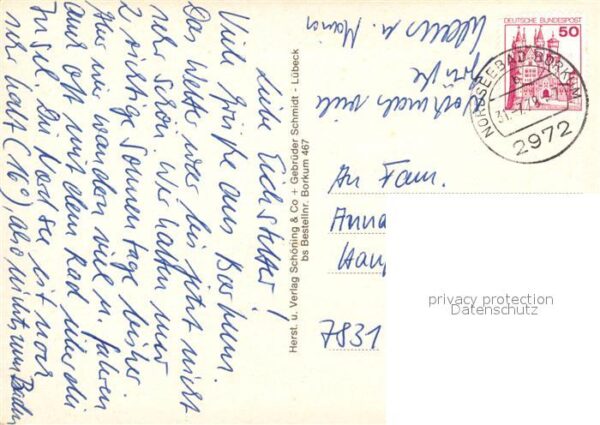 Liebe Eichstetter!
Viele Grüße aus Borkum.
Das Wetter war bis jetzt nicht
sehr schön. Wir hatten nur
2 richtige Sonnentage bisher.
Aber wir wandern viel u. fahren
auch oft mit dem Rad über die
Insel. Die Nordsee ist noch
sehr kalt (16°), also nichts zum Baden
Nochmals viele
Grüße
u. Maria
Herst. u. Verlag Schöning & Co + Gebrüder Schmidt - Lübeck
bs Bestellnr. Borkum 467
DEUTSCHE BUNDESPOST
50
NORDSEEBAD BORKUM
31.-7.78
2972
An Fam.
Anna
Haup
7831
privacy protection
Datenschutz